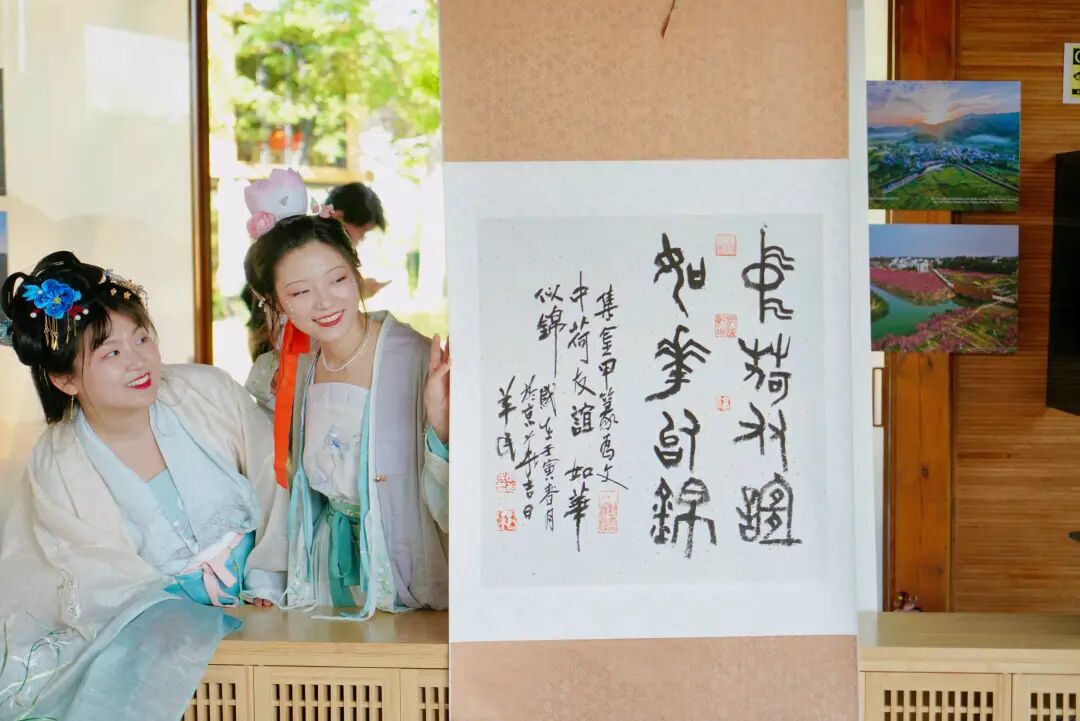 中荷友誼
如華似錦
集金甲篆爲文
中荷友誼 如華
似錦
歲在壬寅春月
於京 吉日
羊民